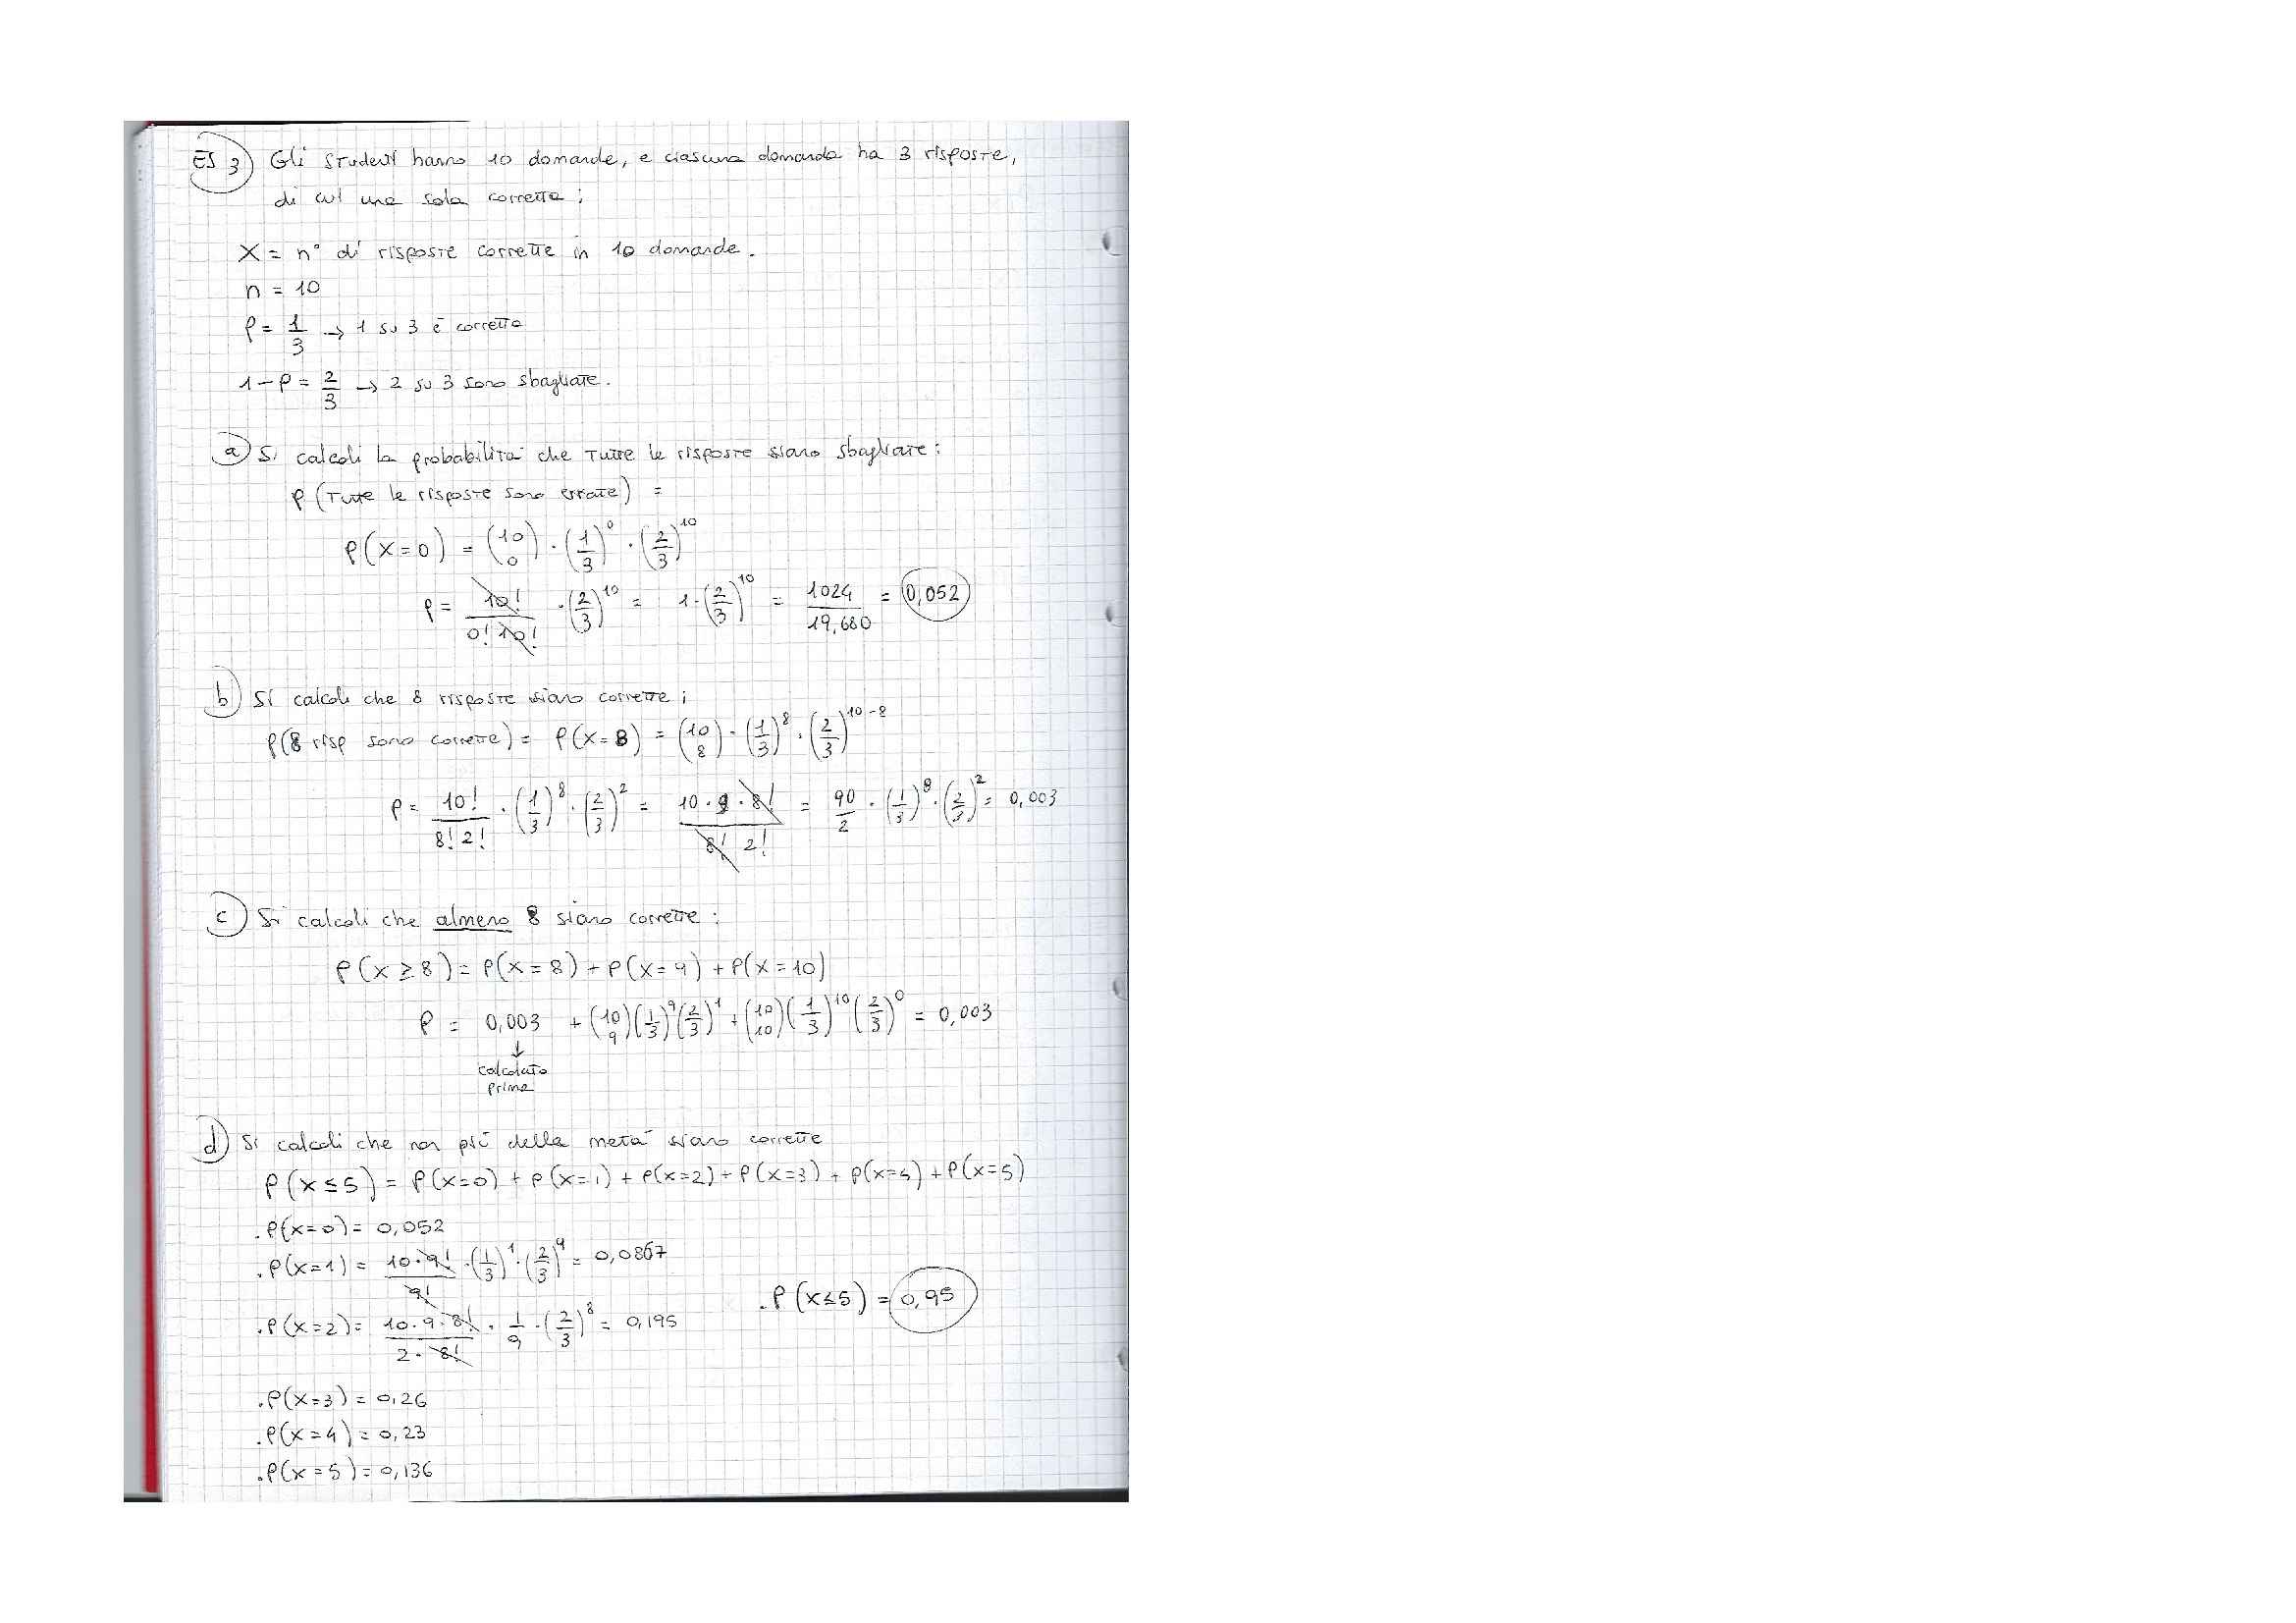 ES 3) Gli studenti hanno 10 domande, e ciascuna domanda ha 3 risposte,
di cui una sola corretta;
X = n° di risposte corrette in 10 domande.
n = 10
P = 1/3 → 1 su 3 è corretta
1 - P = 2/3 → 2 su 3 sono sbagliate.
a) Si calcoli la probabilità che tutte le risposte siano sbagliate:
P (tutte le risposte sono errate) =
P(X=0) = (10 0) · (1/3)^0 · (2/3)^10
P = 10!/(0! 10!) · (2/3)^10 = 1 · (2/3)^10 = 1024/19,680 = 0,052
b) Si calcoli che 8 risposte siano corrette;
P(8 risp sono corrette) = P(X=8) = (10 8) · (1/3)^8 · (2/3)^10-8
P = 10!/(8! 2!) · (1/3)^8 · (2/3)^2 = (10 · 9 · 8!)/(8! 2!) = 90/2 · (1/3)^8 · (2/3)^2 = 0,003
c) Si calcoli che almeno 8 siano corrette:
P(X ≥ 8) = P(X=8) + P(X=9) + P(X=10)
P = 0,003 + (10 9)(1/3)^9 (2/3)^1 + (10 10)(1/3)^10 (2/3)^0 = 0,003
↓
calcolato
prima
d) Si calcoli che non più della metà siano corrette
P(X ≤ 5) = P(X=0) + P(X=1) + P(X=2) + P(X=3) + P(X=4) + P(X=5)
. P(X=0) = 0,052
. P(X=1) = (10 · 9!)/9! · (1/3)^1 · (2/3)^9 = 0,0867
. P(X=2) = (10 · 9 · 8!)/(2 · 8!) · 1/9 · (2/3)^8 = 0,195
. P(X≤5) = 0,95
. P(X=3) = 0,26
. P(X=4) = 0,23
. P(X=5) = 0,136